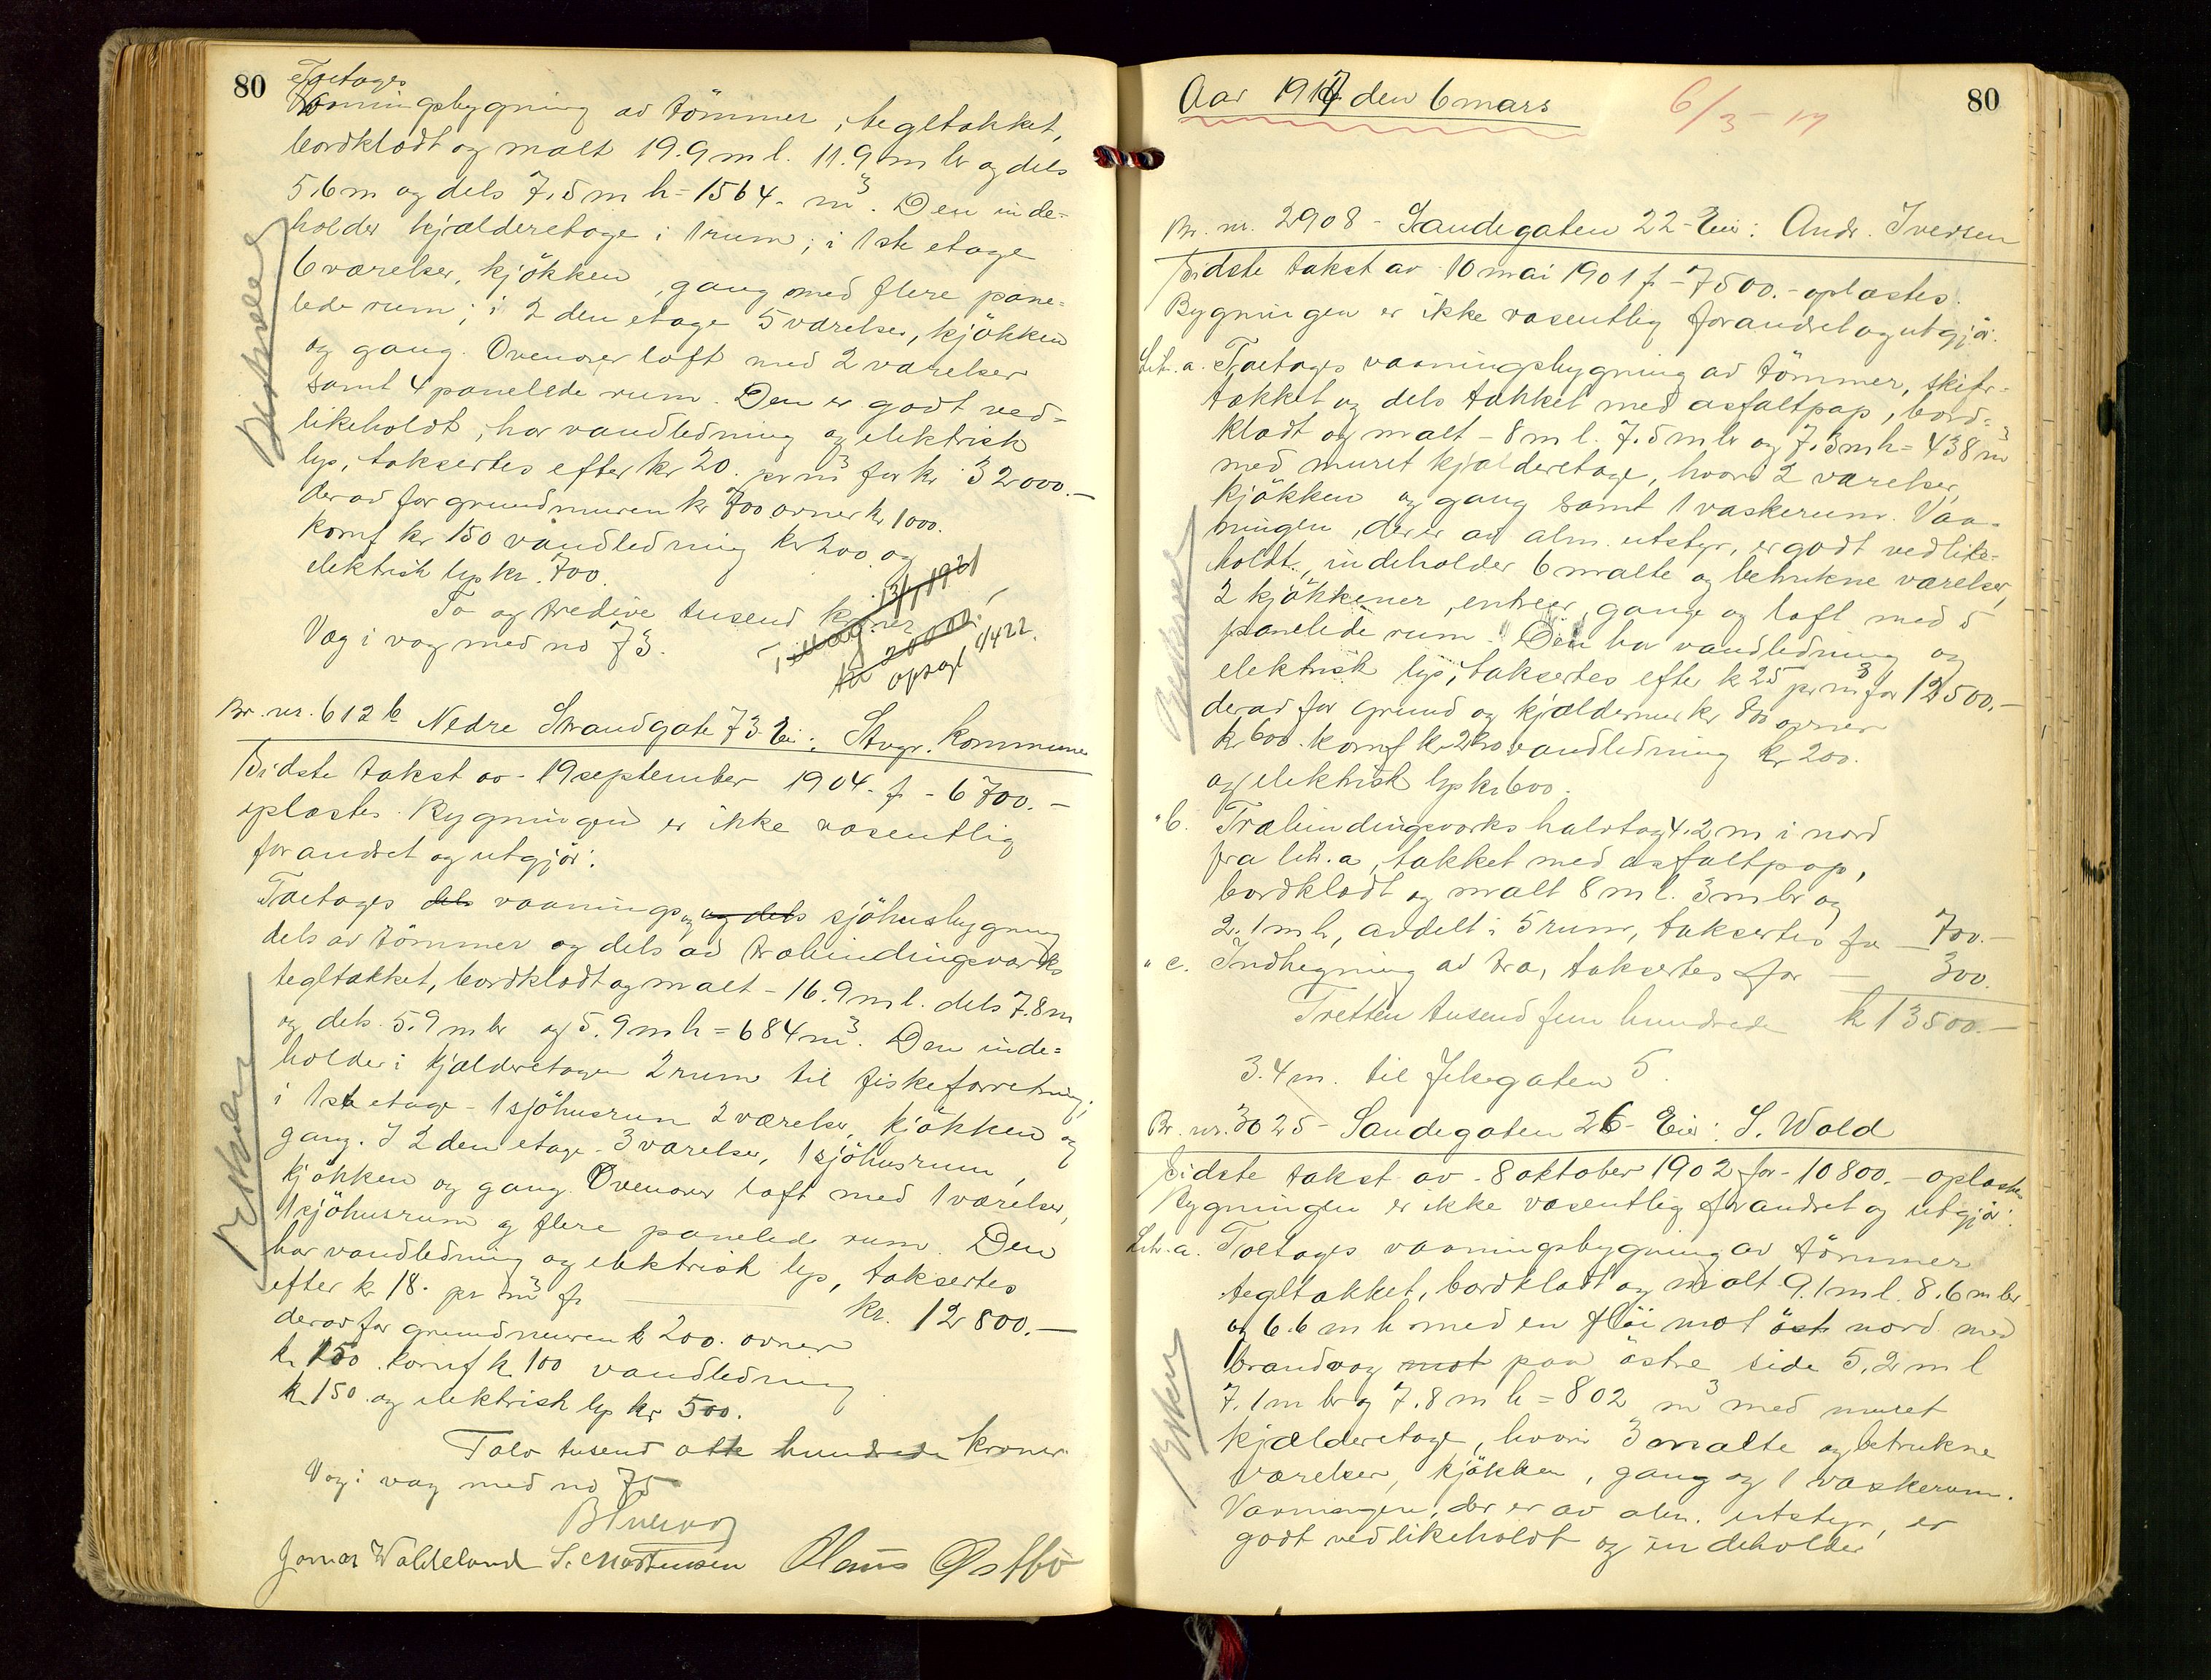 80
Toetages
Vaaningsbygning av tömmer, tegltækket,
bordklædt og malt 19.9 m l. 11.9 m br og dels
5.6 m og dels 7.5 m h = 1564 - m³. Den inde-
holder kjælderetage i 1 rum; i 1ste etage
6 værelser, kjökken, gang med flere pane-
lede rum; i 2den etage 5 værelser, kjökken
og gang. Ovenover loft med 2 værelser
samt 4 panelede rum. Den er godt ved-
likeholdt, har vandledning og elektrisk
lys, taksertes efter kr 20. pr m³ for kr 32000.-
derav for grundmuren kr 700 ovner kr 1000.
komf kr 150 vandledning kr 200 og
elektrisk lys kr. 700.
To og tredive tusend kroner
Væg i væg med no 73.
Tillæg 1921
kr 20000.
opsagt 1/4 22.
Br. nr. 612b Nedre Strandgate 73 - Eier: Stvgr. Kommune
Sidste takst av - 19 september 1904 - f - 6700.-
oplæstes. Bygningen er ikke væsentlig
forandret og utgjör:
Toetages dels vaanings og og dels sjöhusbygning
dels av tömmer og dels av træbindingsværks
tegltækket, bordklædt og malt - 16.9 m l. dels 7.8 m
og dels 5.9 m br og 5.9 m h = 684 m³. Den inde-
holder i kjælderetagen 2 rum til fiskeforretning;
i 1ste etage - 1 sjöhusrum 2 værelser, kjökken og
gang. I 2den etage - 3 værelser, 1 sjöhusrum,
kjökken og gang. Ovenover loft med 1 værelse,
1 sjöhusrum og flere panelede rum. Den
har vandledning og elektrisk lys, taksertes
efter kr 18. pr m³ f. kr. 12800.-
derav for grundmuren kr 200. ovner
kr 150. komf kr. 100 vandledning
kr. 150. og elektrisk lys kr 500.
Tolv tusend otte hundrede kroner
Væg i væg med no 75
Jonas Waldeland S. Mortensen Olaus Østbö
80
Aar 1917 den 6 mars
6/3 - 17
Br. nr. 2908 - Sandegaten 22 - Eier: Andr. Iversen
Sidste takst av 10 mai 1901 f - 7500. - oplæstes.
Bygningen er ikke væsentlig forandret og utgjör:
Litr. a. Toetages vaaningsbygning av tömmer, skifer-
tækket og dels tækket med asfaltpap, bord-
klædt og malt - 8 m l. 7.5 m br og 7.3 m h = 438 m³
med muret kjælderetage, hvori 2 værelser,
kjökken og gang samt 1 vaskerum. Vaa-
ningen, der er av alm. utstyr, er godt vedlike-
holdt, indeholder 6 malte og betrukne værelser,
2 kjökkener, entreer, gange og loft med 5
panelede rum. Den har vandledning og
elektrisk lys, taksertes efter kr 25 pr m³ for 12500.-
derav for grund og kjældermur kr ovner
kr 600. komf kr 200 vandledning kr 200.
og elektrisk lys kr 600.
" b. Træbindingsværks halvtag 4.2 m i nord
fra litr. a, tækket med asfaltpap,
bordklædt og malt 8 m l. 3 m br og
2.1 m h, avdelt i 5 rum, taksertes for - 700.-
" c. Indhegning av træ, taksertes for - 300.
Tretten tusend fem hundrede kr 13500.-
3.4 m. til Jelsegaten 5.
Br. nr. 3025 - Sandegaten 26 - Eier: S. Wold
Sidste takst av - 8 oktober 1902 for - 10800. - oplæstes
Bygningen er ikke væsentlig forandret og utgjör:
Litr. a. Toetages vaaningsbygning av tömmer
tegltækket, bordklædt og malt 9.1 m l. 8.6 m br
og 6.6 m h med en flöi mot öst nord med
brandvæg mot paa östre side 5.2 m l
7.1 m br og 7.8 m h = 802 m³ med muret
kjælderetage, hvori 3 malte og betrukne
værelser, kjökken, gang og 1 vaskerum.
Vaaningen, der er av alm. utstyr, er
godt vedlikeholdt og indeholder